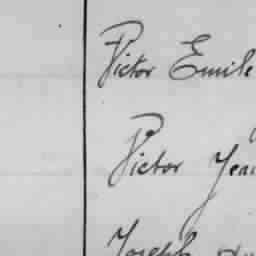 Victor Emile
Victor Jean
Joseph